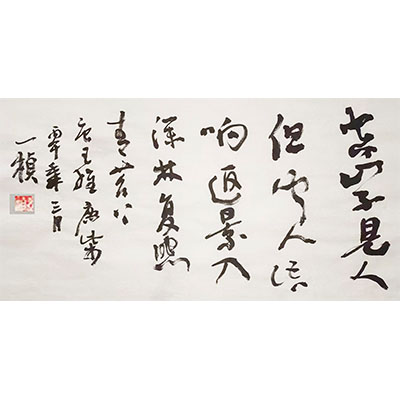 空山不見人
但聞人語
响返景入
深林复照
青苔上
唐王維鹿柴
三月
一